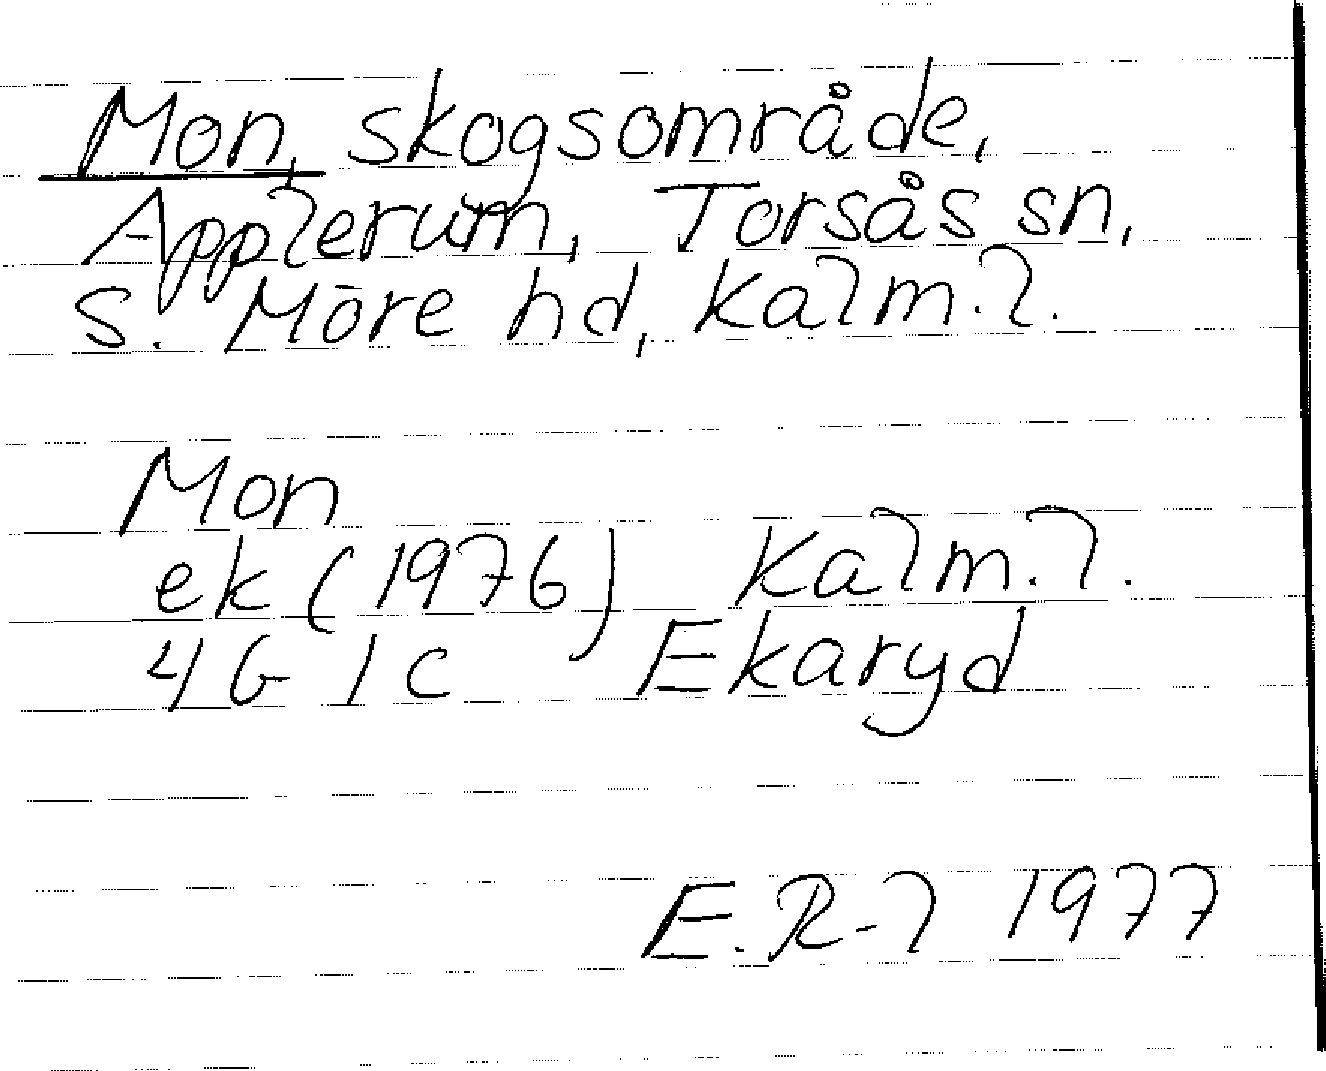 Mon, skogsområde,
Applerum, Torsås sn,
S. Möre hd, Kalm.l.
Mon
ek (1976) Kalm.l.
4G 1c Ekaryd
E.R-l 1977